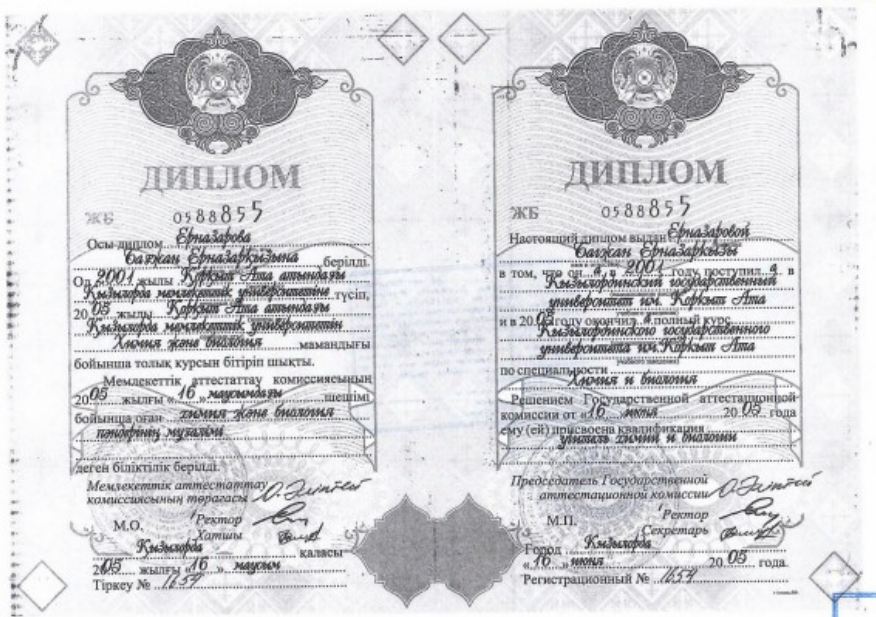 ДИПЛОМ
ЖБ 0588855
Осы диплом Ерназарова
Бағжан Ерназарқызына берілді.
Ол 2001 жылы Қорқыт Ата атындағы
Қызылорда мемлекеттік университетіне түсіп,
2005 жылы Қорқыт Ата атындағы
Қызылорда мемлекеттік университетін
Химия және биология мамандығы
бойынша толық курсын бітіріп шықты.
Мемлекеттік аттестаттау комиссиясының
2005 жылғы «16» маусымдағы шешімі
бойынша оған химия және биология
пәндерінің мұғалімі
деген біліктілік берілді.
Мемлекеттік аттестаттау
комиссиясының төрағасы
М.О. Ректор
Хатшы
Қызылорда қаласы
2005 жылғы «16» маусым
Тіркеу № 1654
ДИПЛОМ
ЖБ 0588855
Настоящий диплом выдан Ерназаровой
Бағжан Ерназарқызы
в том, что он а в 2001 году поступил а в
Кызылординский государственный
университет им. Коркыт Ата
и в 2005 году окончил а полный курс
Кызылординского государственного
университета им. Коркыт Ата
по специальности
Химия и биология
Решением Государственной аттестационной
комиссии от «16» июня 2005 года
ему (ей) присвоена квалификация
учитель химии и биологии
Председатель Государственной
аттестационной комиссии
М.П. Ректор
Секретарь
Город Кызылорда
«16» июня 2005 года
Регистрационный № 1654